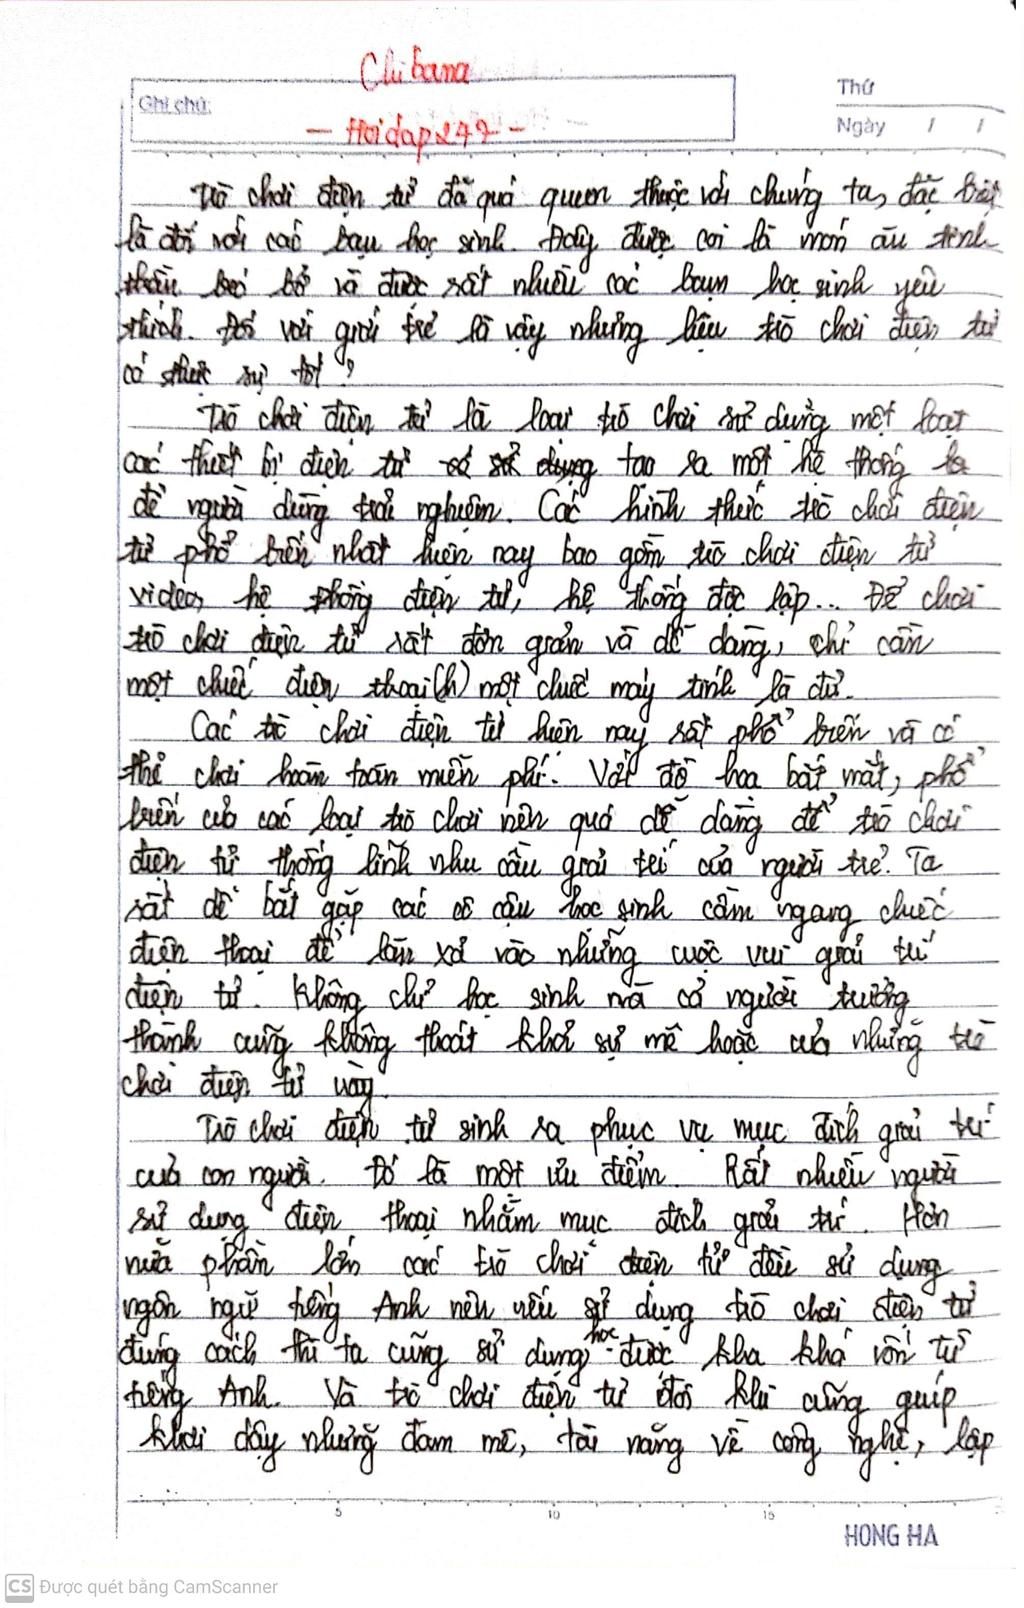 Chibana
Ghi chú:
- Hoidap247 -
Thứ
Ngày / /
Trò chơi điện tử đã quá quen thuộc với chúng ta, đặc biệt
là đối với các bạn học sinh. Đây được coi là món ăn tinh
thần bổ và được rất nhiều các bạn học sinh yêu
thích. Đối với giới trẻ là vậy nhưng liệu trò chơi điện tử
có thực sự tốt?
Trò chơi điện tử là loại trò chơi sử dụng một loạt
các thiết bị điện tử tạo ra một hệ thống
để người dùng trải nghiệm. Các hình thức trò chơi điện
tử phổ biến nhất hiện nay bao gồm trò chơi điện tử
video, hệ thống điện tử, hệ thống độc lập... Để chơi
trò chơi điện tử rất đơn giản và dễ dàng, chỉ cần
một chiếc điện thoại (h) một chiếc máy tính là đủ.
Các trò chơi điện tử hiện nay rất phổ biến và có
thể chơi hoàn toàn miễn phí. Với đồ họa bắt mắt, phổ
biến của các loại trò chơi nên quá dễ dàng để trò chơi
điện tử thống lĩnh nhu cầu giải trí của người trẻ. Ta
rất dễ bắt gặp các cô cậu học sinh cầm ngang chiếc
điện thoại để lăn xả vào những cuộc vui giải trí
điện tử. Không chỉ học sinh mà cả người trưởng
thành cũng không thoát khỏi sự mê hoặc của những trò
chơi điện tử này.
Trò chơi điện tử sinh ra phục vụ mục đích giải trí
của con người. Đó là một ưu điểm. Rất nhiều người
sử dụng điện thoại nhằm mục đích giải trí. Hơn
nữa phần lớn các trò chơi điện tử đều sử dụng
ngôn ngữ tiếng Anh nên nếu sử dụng trò chơi điện tử
đúng cách thì ta cũng sử dụng học được kha khá vốn từ
tiếng Anh. Và trò chơi điện tử đôi khi cũng giúp
khơi dậy những đam mê, tài năng về công nghệ, lập
5 10 15
HONG HA
CS Được quét bằng CamScanner